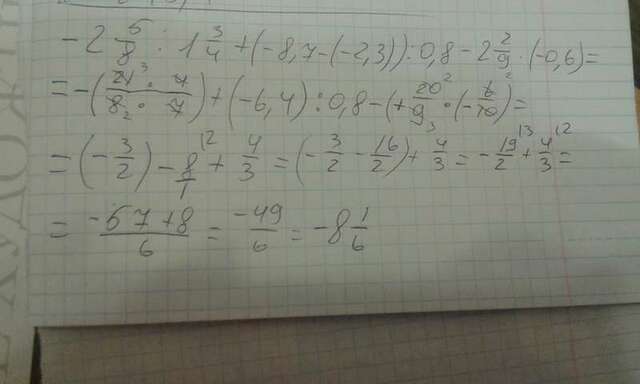 -2 5/8 : 1 3/4 + (-8,7-(-2,3)) : 0,8 - 2 2/9 · (-0,6) =
= -(21³ · 4 / 8₂ · 7) + (-6,4) : 0,8 - (+20²/9₃ · (-6²/10)) =
= (-3/2) - 8/1 |2 + 4/3 = (-3/2 - 16/2) + 4/3 = -19/2 |3 + 4/3 |2 =
= -57+8/6 = -49/6 = -8 1/6